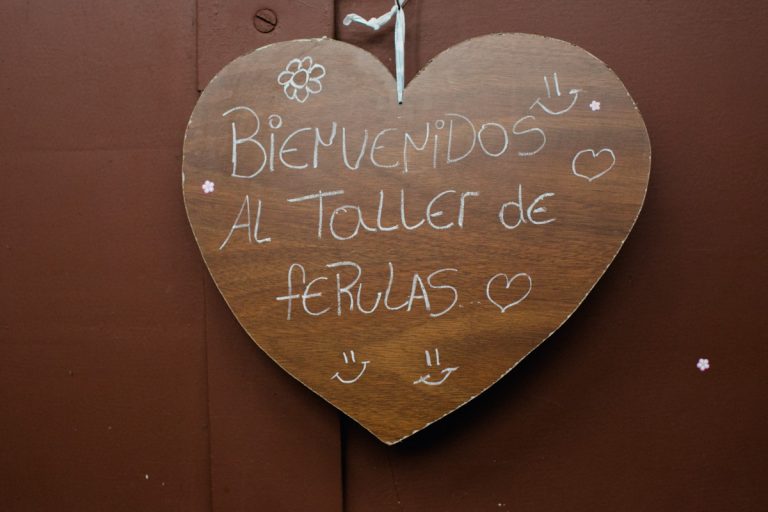 BiENVENiDOS
AL TaLLEr de
fERULAS